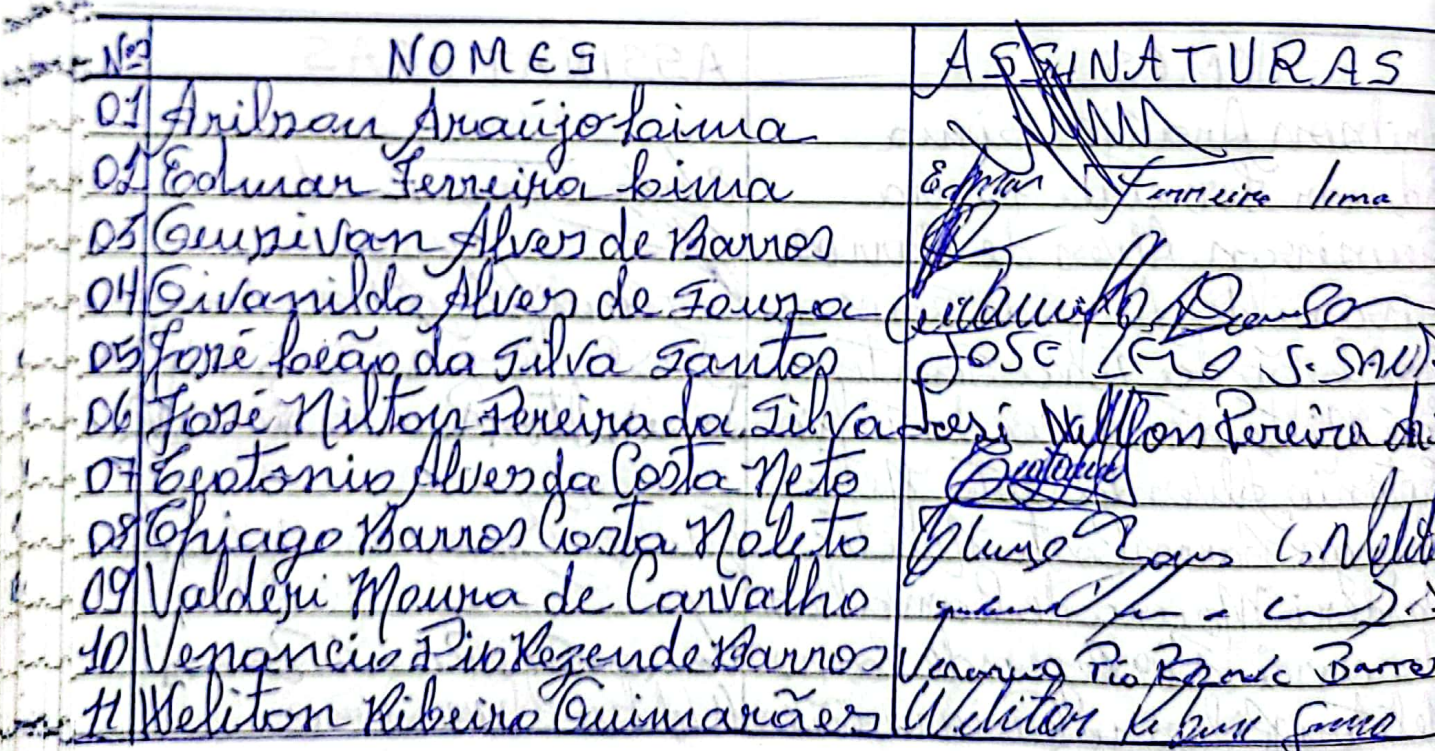 Nº NOMES ASSINATURAS
01 Arilson Araújo Lima
02 Edmar Ferreira Lima Edmar Ferreira lima
03 Geurivan Alves de Barros
04 Givanildo Alves de Souza
05 José Leão da Silva Santos JOSE LEÃO S. SANT
06 José Nilton Pereira da Silva José Nilton Pereira da
07 Teotonio Alves da Costa Neto
08 Thiago Barros Costa Noleto
09 Valderi Moura de Carvalho
10 Venancio Pio Rezende Barros Venancio Pio Rezende Barro
11 Weliton Ribeiro Guimarães Weliton